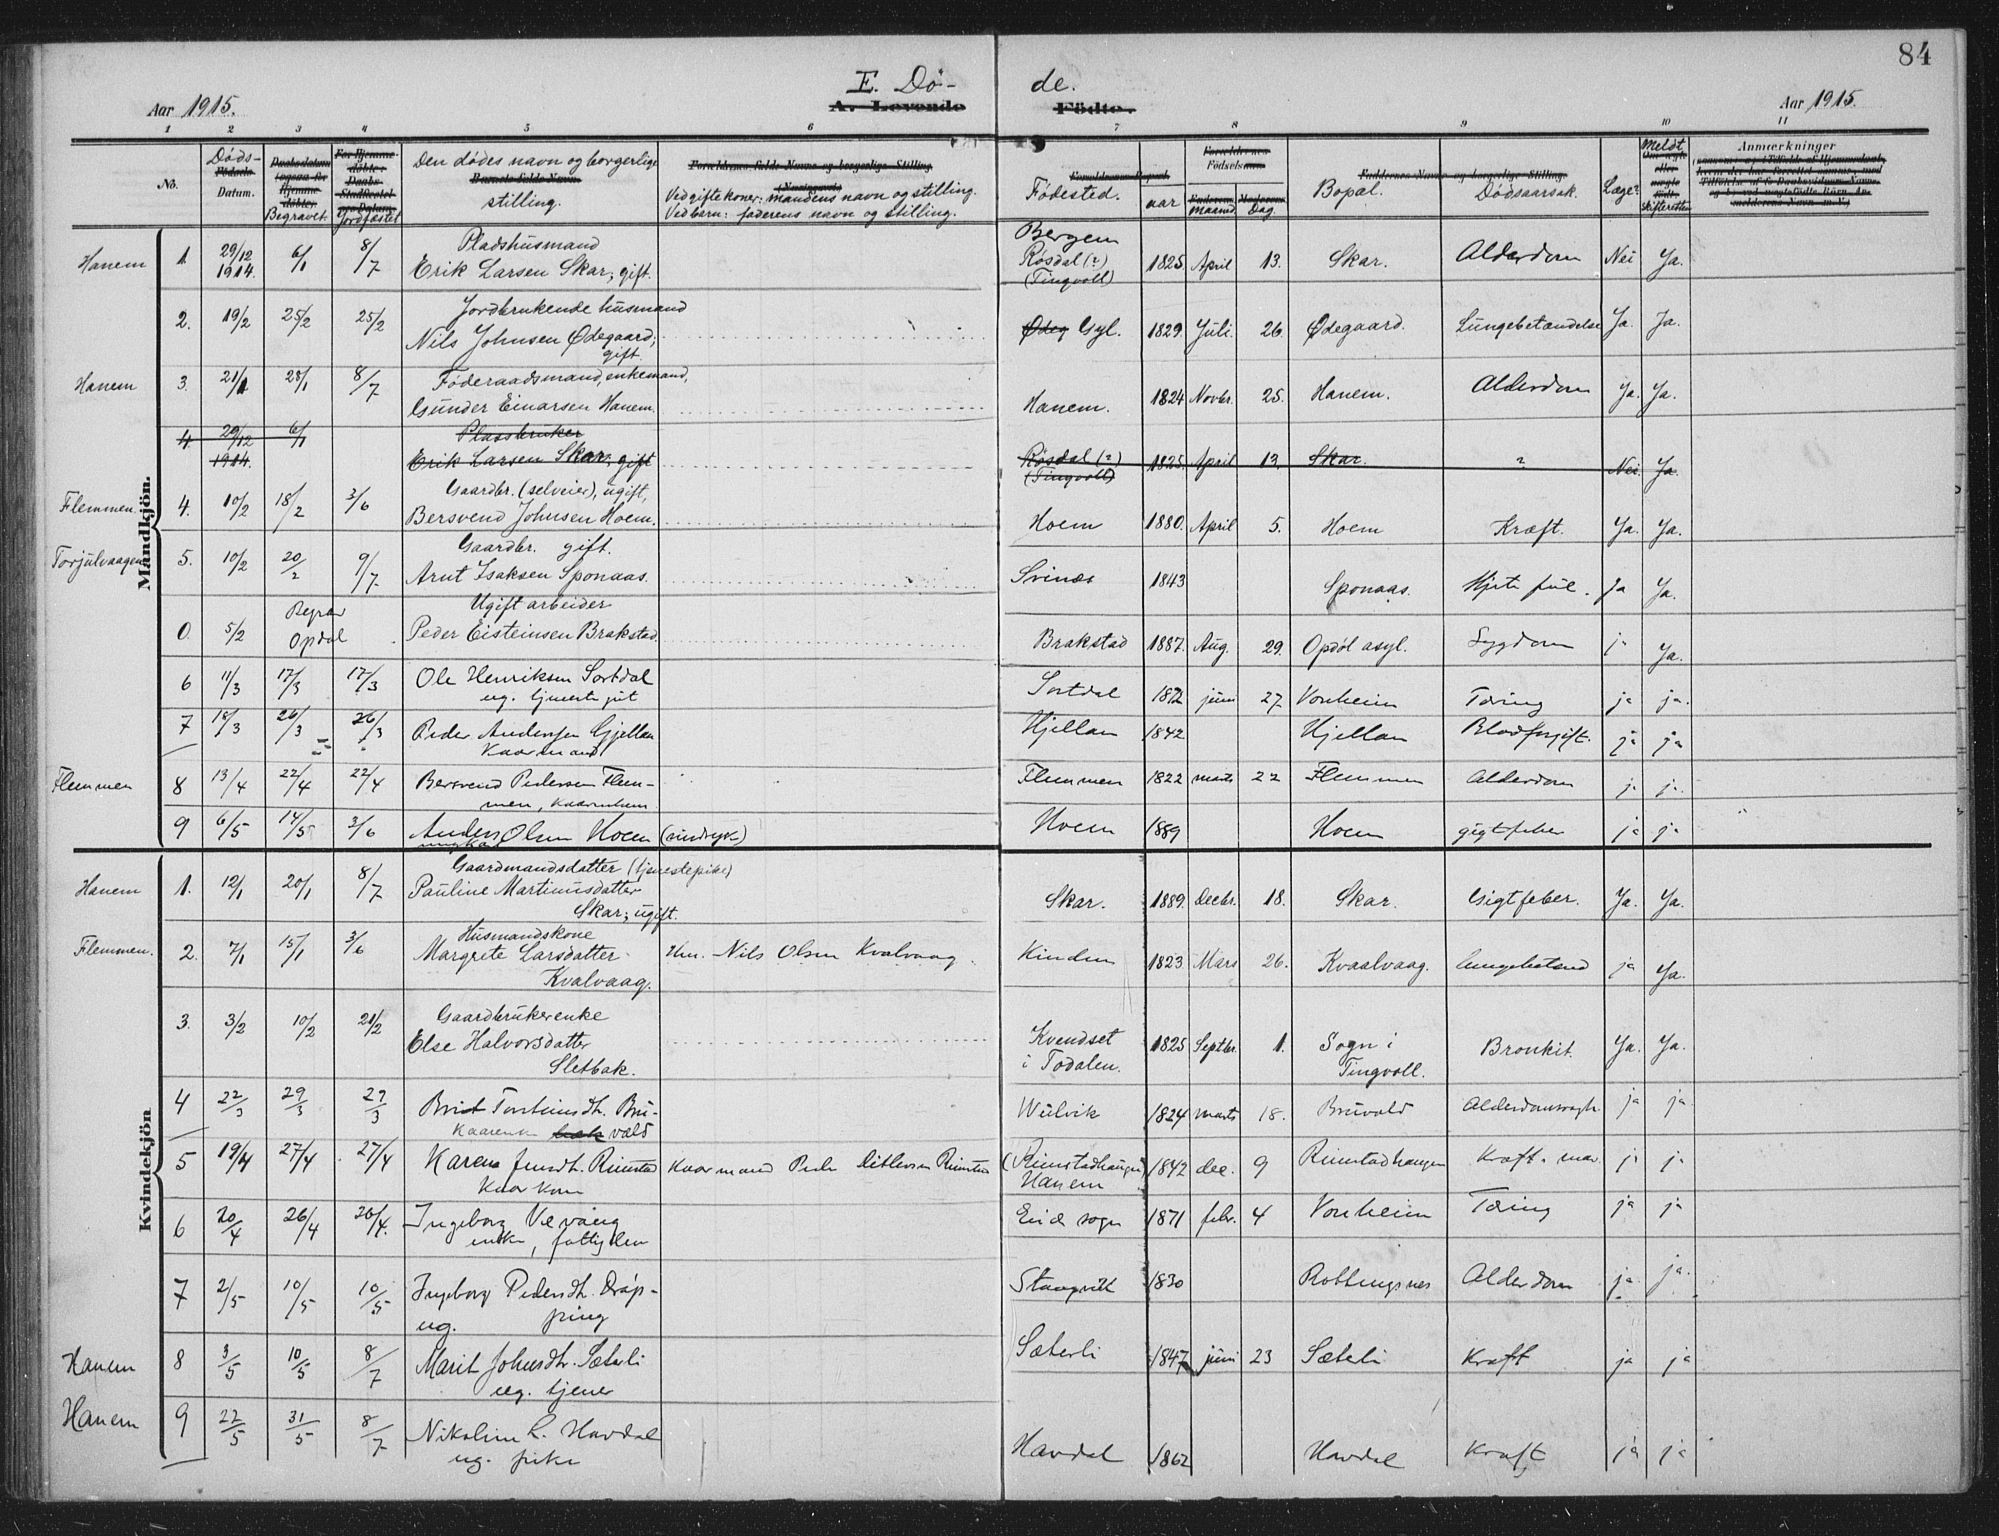 84
E. Dø- de.
Aar 1915. A. Levende Födte. Aar 1915.
1 2 3 4 5 6 7 8 9 10 11
No. Døds- Datum. Begravet. Jordfæstet Den dødes navn og borgerlige stilling. Ved giftekoner: mandens navn og stilling. Ved barn: faderens navn og stilling. Fødested. Födsels aar Maaned Dag. Bopæl. Dødsaarsak. Læge? Meldt skifteretten Anmærkninger
Mandkjön.
Pladshusmand Bergem
Hanem 1. 29/12 1914. 6/1 8/7 Erik Larsen Skar; gift. Røsdal (?) (Tingvoll) 1825 April 13. Skar. Alderdom Nei Ja.
Jordbrukende husmand
2. 19/2 25/2 25/2 Nils Johnsen Ødegaard; gift. Ødeg Gyl. 1829. Juli 26. Ødegaard. Lungebetændelse Ja. Ja.
Føderaadsmand, enkemand,
Hanem 3. 21/1 28/1 8/7 Gunder Einarsen Hanem. Hanem. 1824 Novbr. 25. Hanem. Alderdom Ja. Ja.
Plassbruker
4 29/12 1914. 6/1 Erik Larsen Skar; gift Røsdal (?) (Tingvoll) 1825. April 13. Skar. ? Nei Ja.
Gaardbr. (selveier), ugift,
Flemmen. 4. 10/2 18/2 3/6 Bersvend Johnsen Hoem. Hoem 1880. April 5. Hoem Kræft. Ja. Ja.
Gaardbr. gift.
Torjulvaagen 5. 10/2 20/2 9/7 Arnt Isaksen Sponaas. Svinæs 1843 Sponaas. Hjertefeil. Ja Ja.
Ugift arbeider
0. 5/2 Begrav Opdal Peder Eisteinsen Brakstad Brakstad 1887. Aug. 29. Opdøl asyl. Sygdom j Ja.
6 11/3 17/3 17/3 Ole Henriksen Sortdal Sortdal 1872 juni 27 Vonheim Tæring ja ja.
ug. tjenestegut
7 18/3 26/3 26/3 Peder Andersen Gjellan Hjellan 1842 Hjellan Blodforgift. ja ja
Kaarmand
Flemmen 8 13/4 22/4 22/4 Bersvend Pedersen Flem- Flemmen 1822 marts 22 Flemmen Alderdom j j.
men,
9 6/5 14/5 3/6 Anders Olsen Hoem Hoem 1889 Hoem gigtfeber ja ja
ungkar
Kvindekjön
Gaardmandsdatter (tjenestepike)
Hanem 1. 12/1 20/1 8/7 Pauline Martinusdatter Skar; ugift. Skar. 1889. Decbr. 18. Skar. Gigtfeber. Ja. Ja.
Husmandskone
Flemmen. 2. 7/1 15/1 3/6 Margrete Larsdatter Kvalvaag. Hm. Nils Olsen Kvalvaag. Kinden 1823 Mars 26. Kvaalvaag. Lungebetænd ja Ja.
Gaardbrukerenke
3. 3/2 10/2 21/2 Else Halvorsdatter Sletbak. Kvendset i Todalen. 1825 Septbr. 1. Sogn i Tingvoll. Bronkit. Ja. Ja.
4 22/3 29/3 29/3 Brit Torsteinsdh. Bru- Wulvik 1824 marts 18. Bruvold Alderdomssvagh. ja ja.
Kaarenk bæk vold
5 19/4 27/4 27/4 Karen Jensdh. Rimstad Kaarmand Peder Ditlevsen Rimstad (Rimstadhaugen) Hanem 1842 dec. 9 Rimstadhaugen Kræft. mav. j j
Kaarkone
6 20/4 26/4 26/4. Ingeborg Vevang Eide sogn 1871 febr. 4 Vonheim Tæring ja ja
enke, fattiglem
7 2/5 10/5 10/5 Ingeborg Pedersdh. Drøp- Stangvik 1830 Rottingsnes Alderdom ja ja.
ug. ping
Hanem 8 3/5 10/5 8/7 Marit Johnsdtr. Sæterli Sæterli 1847 juni 23 Sæterli Kræft ja ja
ug. tjener
Hanem 9 22/5 31/5 8/7 Nikoline L. Havdal Havdal 1862 Havdal Kræft ja ja
ug. pike